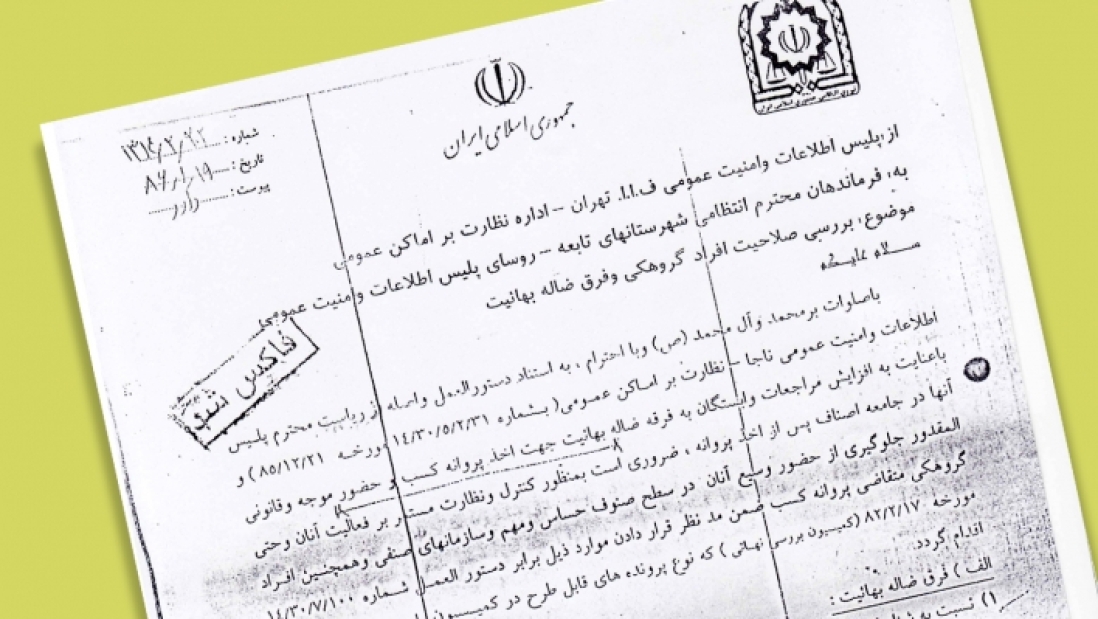 جمهوری اسلامی ایران
شماره :
تاریخ : ۱۹
پیوست : دارد
از، پلیس اطلاعات وامنیت عمومی ف.ا.ا. تهران – اداره نظارت بر اماکن عمومی
به، فرماندهان محترم انتظامی شهرستانهای تابعه – روسای پلیس اطلاعات وامنیت عمومی
موضوع، بررسی صلاحیت افراد گروهکی وفرق ضاله بهائیت
سلام علیکم
فاکس شد
باصلوات برمحمد وآل محمد (ص) وبا احترام ، به استناد دستورالعمل واصله از ریاست محترم پلیس
اطلاعات وامنیت عمومی ناجا – نظارت بر اماکن عمومی( بشماره ۱۴/۳۰/۵/۲/۳۱ مورخه ۸۵/۱۲/۲۱ ) و
باعنایت به افزایش مراجعات وابستگان به فرقه ضاله بهائیت جهت اخذ پروانه کسب و حضور موجه وقانونی
آنها در جامعه اصناف پس از اخذ پروانه ، ضروری است بمنظور کنترل ونظارت مستمر بر فعالیت آنان وحتی
المقدور جلوگیری از حضور وسیع آنان در سطح صنوف حساس ومهم وسازمانهای صنفی وهمچنین افراد
گروهکی متقاضی پروانه کسب ضمن مد نظر قرار دادن موارد ذیل برابر دستور العمل شماره ۱۴/۳۰/۷/۱۰۰
مورخه ۸۲/۲/۱۷ (کمیسیون بررسی نهائی ) که نوع پرونده های قابل طرح در کمیسیون
اقدام گردد.
الف ) فرق ضاله بهائیت :
۱) نسبت به